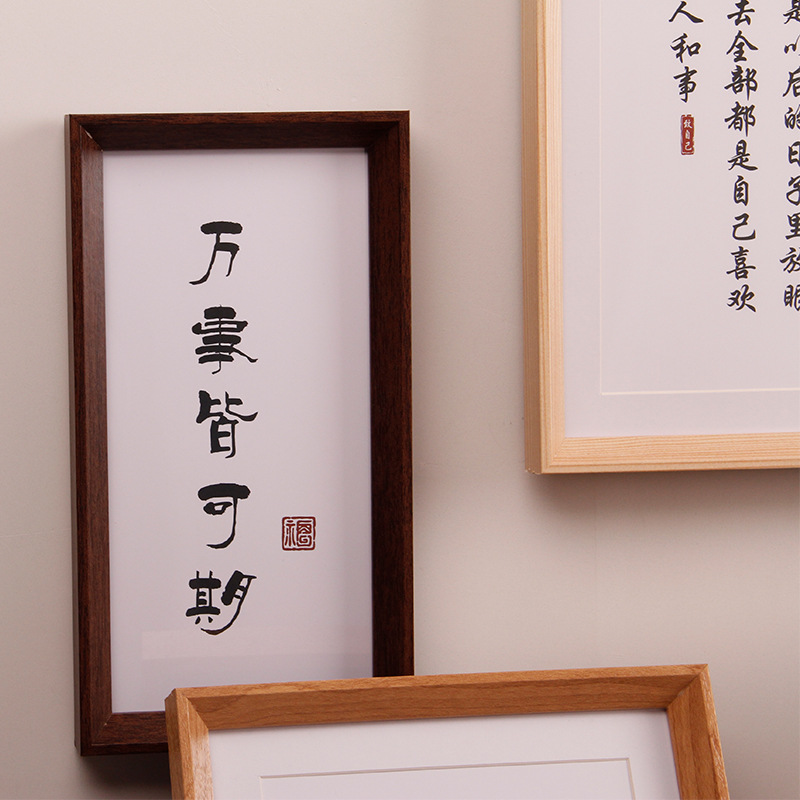 万事皆可期
福
是以后的日子里放眼
去全部都是自己喜欢
人和事
致自己